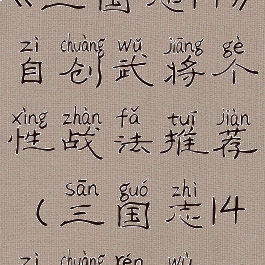 《三国志11》
zì chuàng wǔ jiāng gè
自创武将个
xìng zhàn fǎ tuī jiàn
性战法推荐
sān guó zhì
(三国志14
zì chuàng rén wù